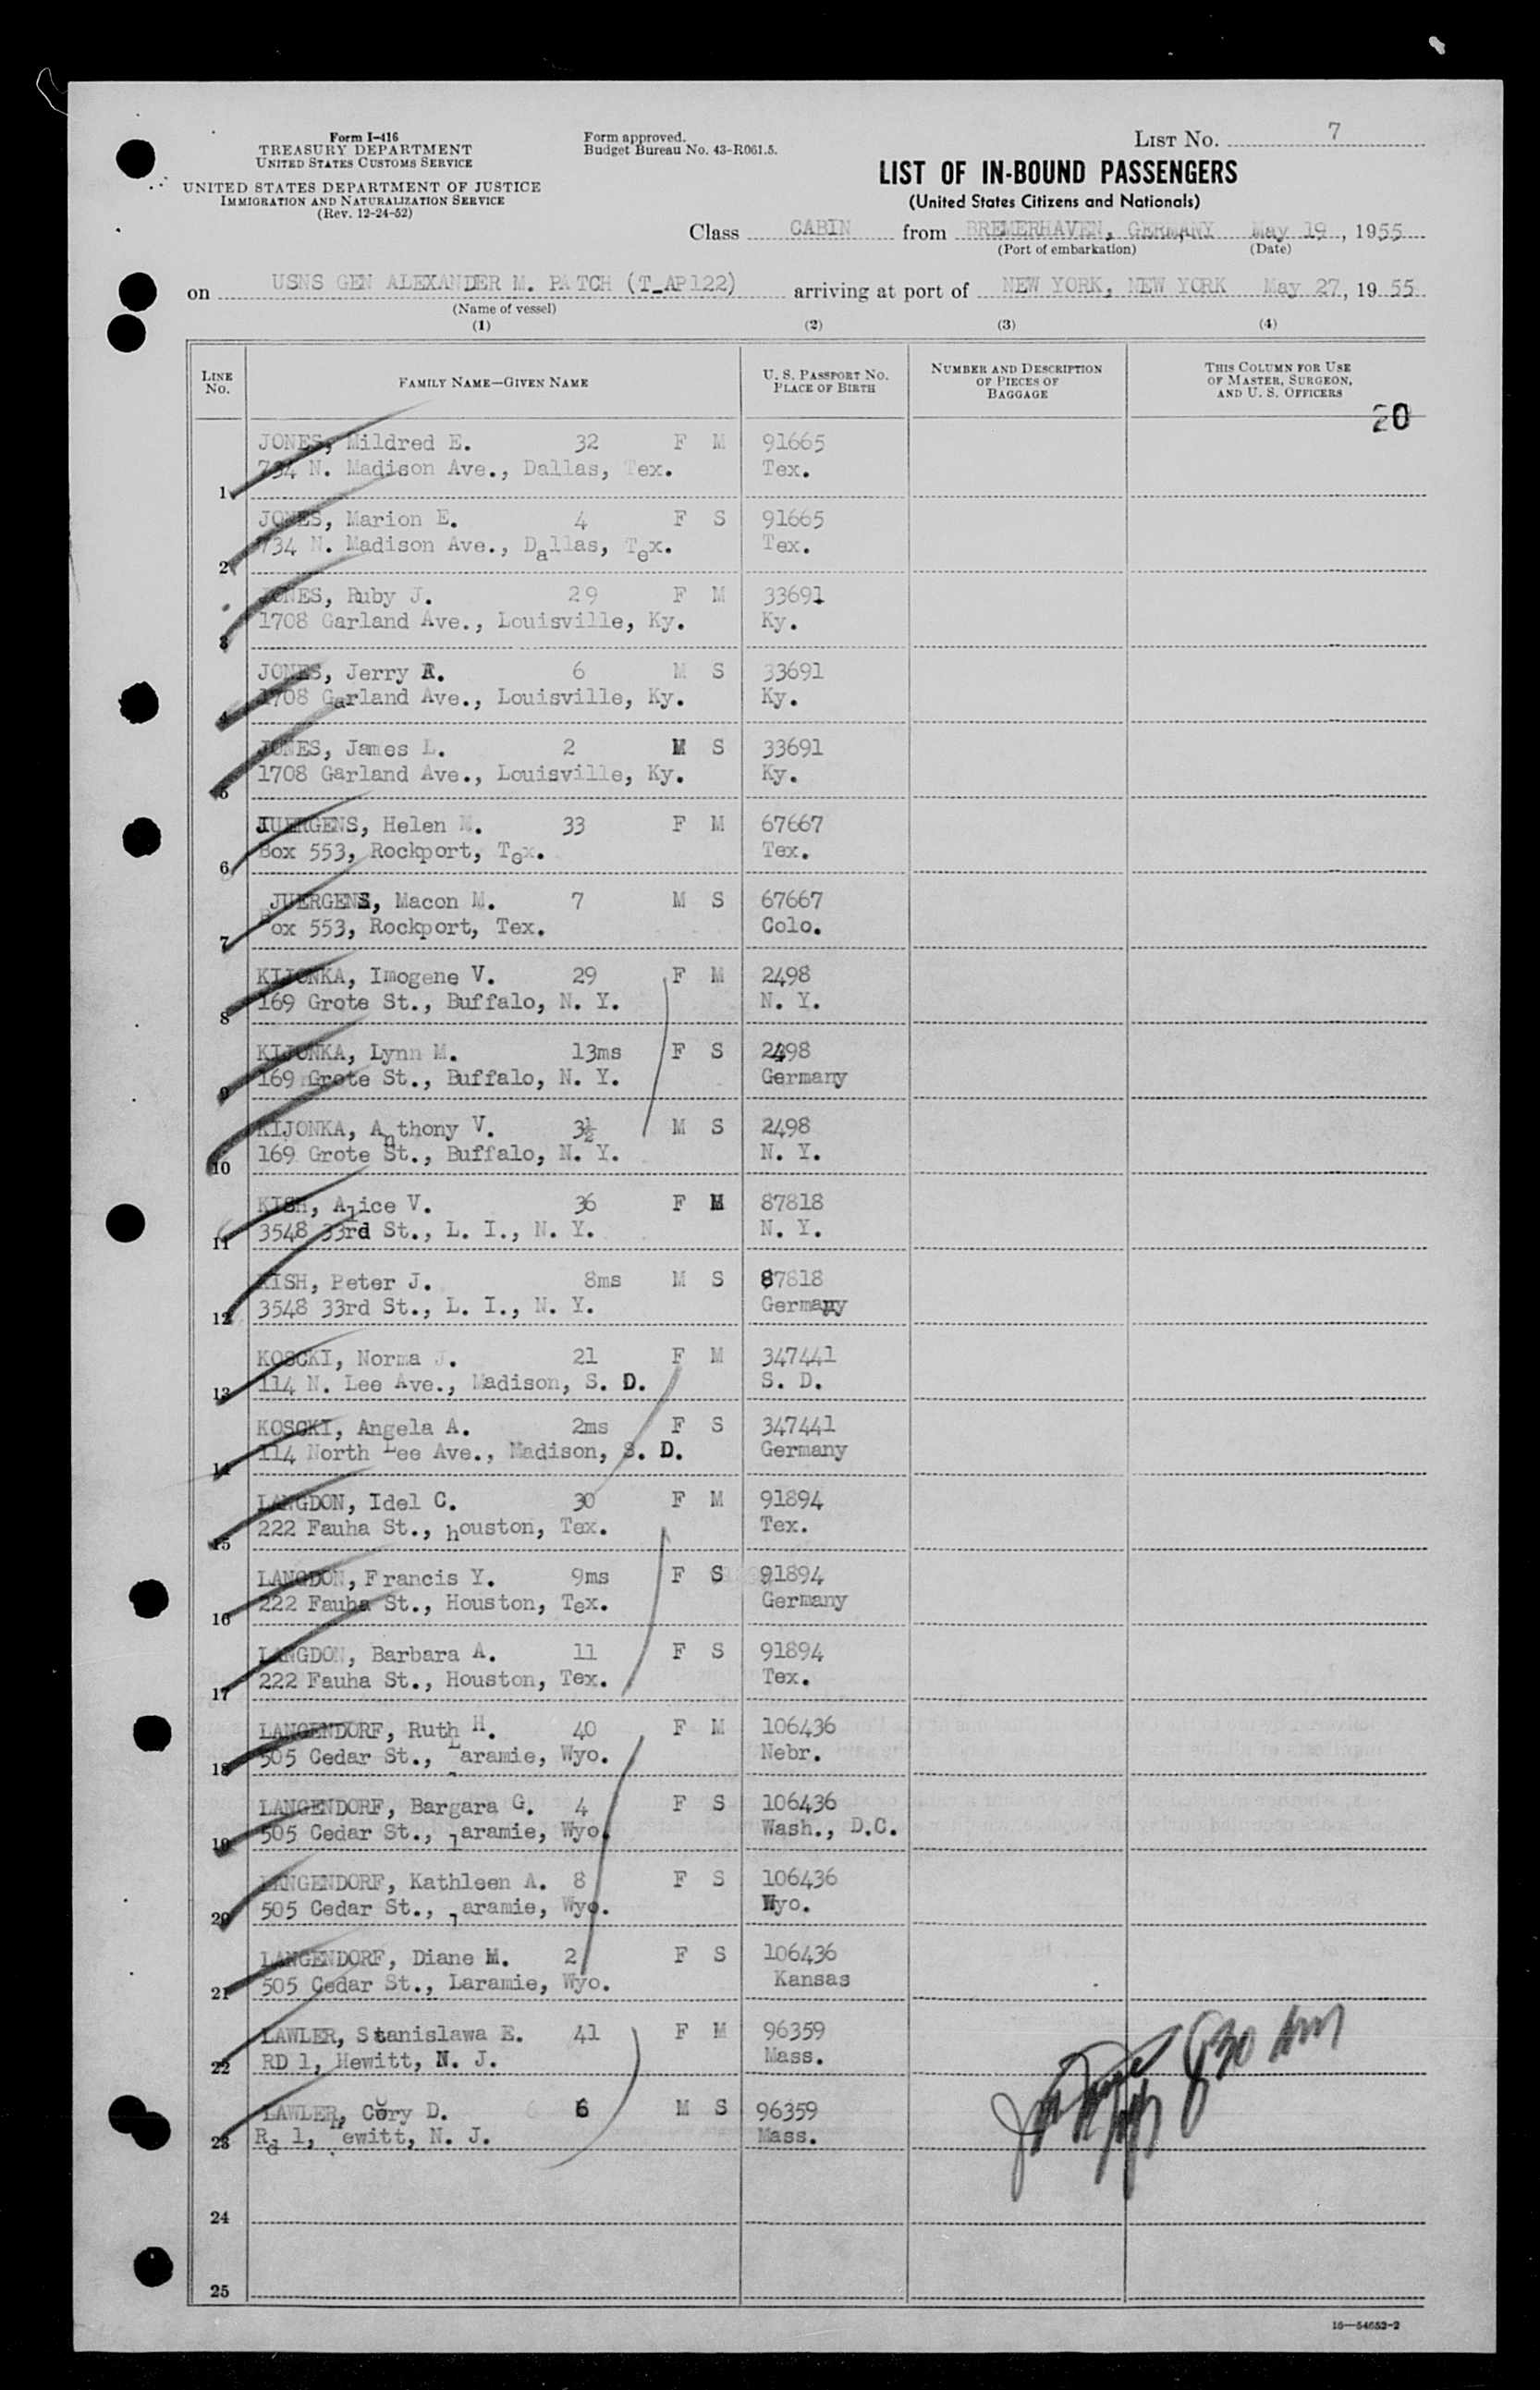 Form I-416
TREASURY DEPARTMENT
UNITED STATES CUSTOMS SERVICE
UNITED STATES DEPARTMENT OF JUSTICE
IMMIGRATION AND NATURALIZATION SERVICE
(Rev. 12-24-52)
Form approved.
Budget Bureau No. 43-R061.5.
LIST No. 7
LIST OF IN-BOUND PASSENGERS
(United States Citizens and Nationals)
Class CABIN from BREMERHAVEN, GERMANY May 19, 1955
(Port of embarkation) (Date)
on USNS GEN ALEXANDER M. PATCH (T_AP122) arriving at port of NEW YORK, NEW YORK May 27, 1955
(Name of vessel)
(1) (2) (3) (4)
LINE No. FAMILY NAME—GIVEN NAME U. S. PASSPORT NO. PLACE OF BIRTH NUMBER AND DESCRIPTION OF PIECES OF BAGGAGE THIS COLUMN FOR USE OF MASTER, SURGEON, AND U. S. OFFICERS
20
JONES, Mildred E. 32 F M 91665
1 734 N. Madison Ave., Dallas, Tex. Tex.
JONES, Marion E. 4 F S 91665
2 734 N. Madison Ave., Dallas, Tex. Tex.
JONES, Ruby J. 29 F M 33691
3 1708 Garland Ave., Louisville, Ky. Ky.
JONES, Jerry A. 6 M S 33691
4 1708 Garland Ave., Louisville, Ky. Ky.
JONES, James L. 2 M S 33691
5 1708 Garland Ave., Louisville, Ky. Ky.
JUERGENS, Helen M. 33 F M 67667
6 Box 553, Rockport, Tex. Tex.
JUERGENS, Macon M. 7 M S 67667
7 Box 553, Rockport, Tex. Colo.
KIJONKA, Imogene V. 29 F M 2498
8 169 Grote St., Buffalo, N. Y. N. Y.
KIJONKA, Lynn M. 13ms F S 2498
9 169 Grote St., Buffalo, N. Y. Germany
KIJONKA, Anthony V. 3½ M S 2498
10 169 Grote St., Buffalo, N. Y. N. Y.
KISH, Alice V. 36 F M 87818
11 3548 33rd St., L. I., N. Y. N. Y.
KISH, Peter J. 8ms M S 87818
12 3548 33rd St., L. I., N. Y. Germany
KOSCKI, Norma J. 21 F M 347441
13 114 N. Lee Ave., Madison, S. D. S. D.
KOSCKI, Angela A. 2ms F S 347441
14 114 North Lee Ave., Madison, S. D. Germany
LANGDON, Idel C. 30 F M 91894
15 222 Fauha St., houston, Tex. Tex.
LANGDON, Francis Y. 9ms F S 91894
16 222 Fauha St., Houston, Tex. Germany
LANGDON, Barbara A. 11 F S 91894
17 222 Fauha St., Houston, Tex. Tex.
LANGENDORF, Ruth H. 40 F M 106436
18 505 Cedar St., Laramie, Wyo. Nebr.
LANGENDORF, Bargara G. 4 F S 106436
19 505 Cedar St., laramie, Wyo. Wash., D.C.
LANGENDORF, Kathleen A. 8 F S 106436
20 505 Cedar St., laramie, Wyo. Wyo.
LANGENDORF, Diane M. 2 F S 106436
21 505 Cedar St., Laramie, Wyo. Kansas
LAWLER, Stanislawa E. 41 F M 96359
22 RD 1, Hewitt, N. J. Mass.
LAWLER, Cory D. 6 M S 96359
23 Rd 1, Hewitt, N. J. Mass.
830 AM
24
25
16—54652-2